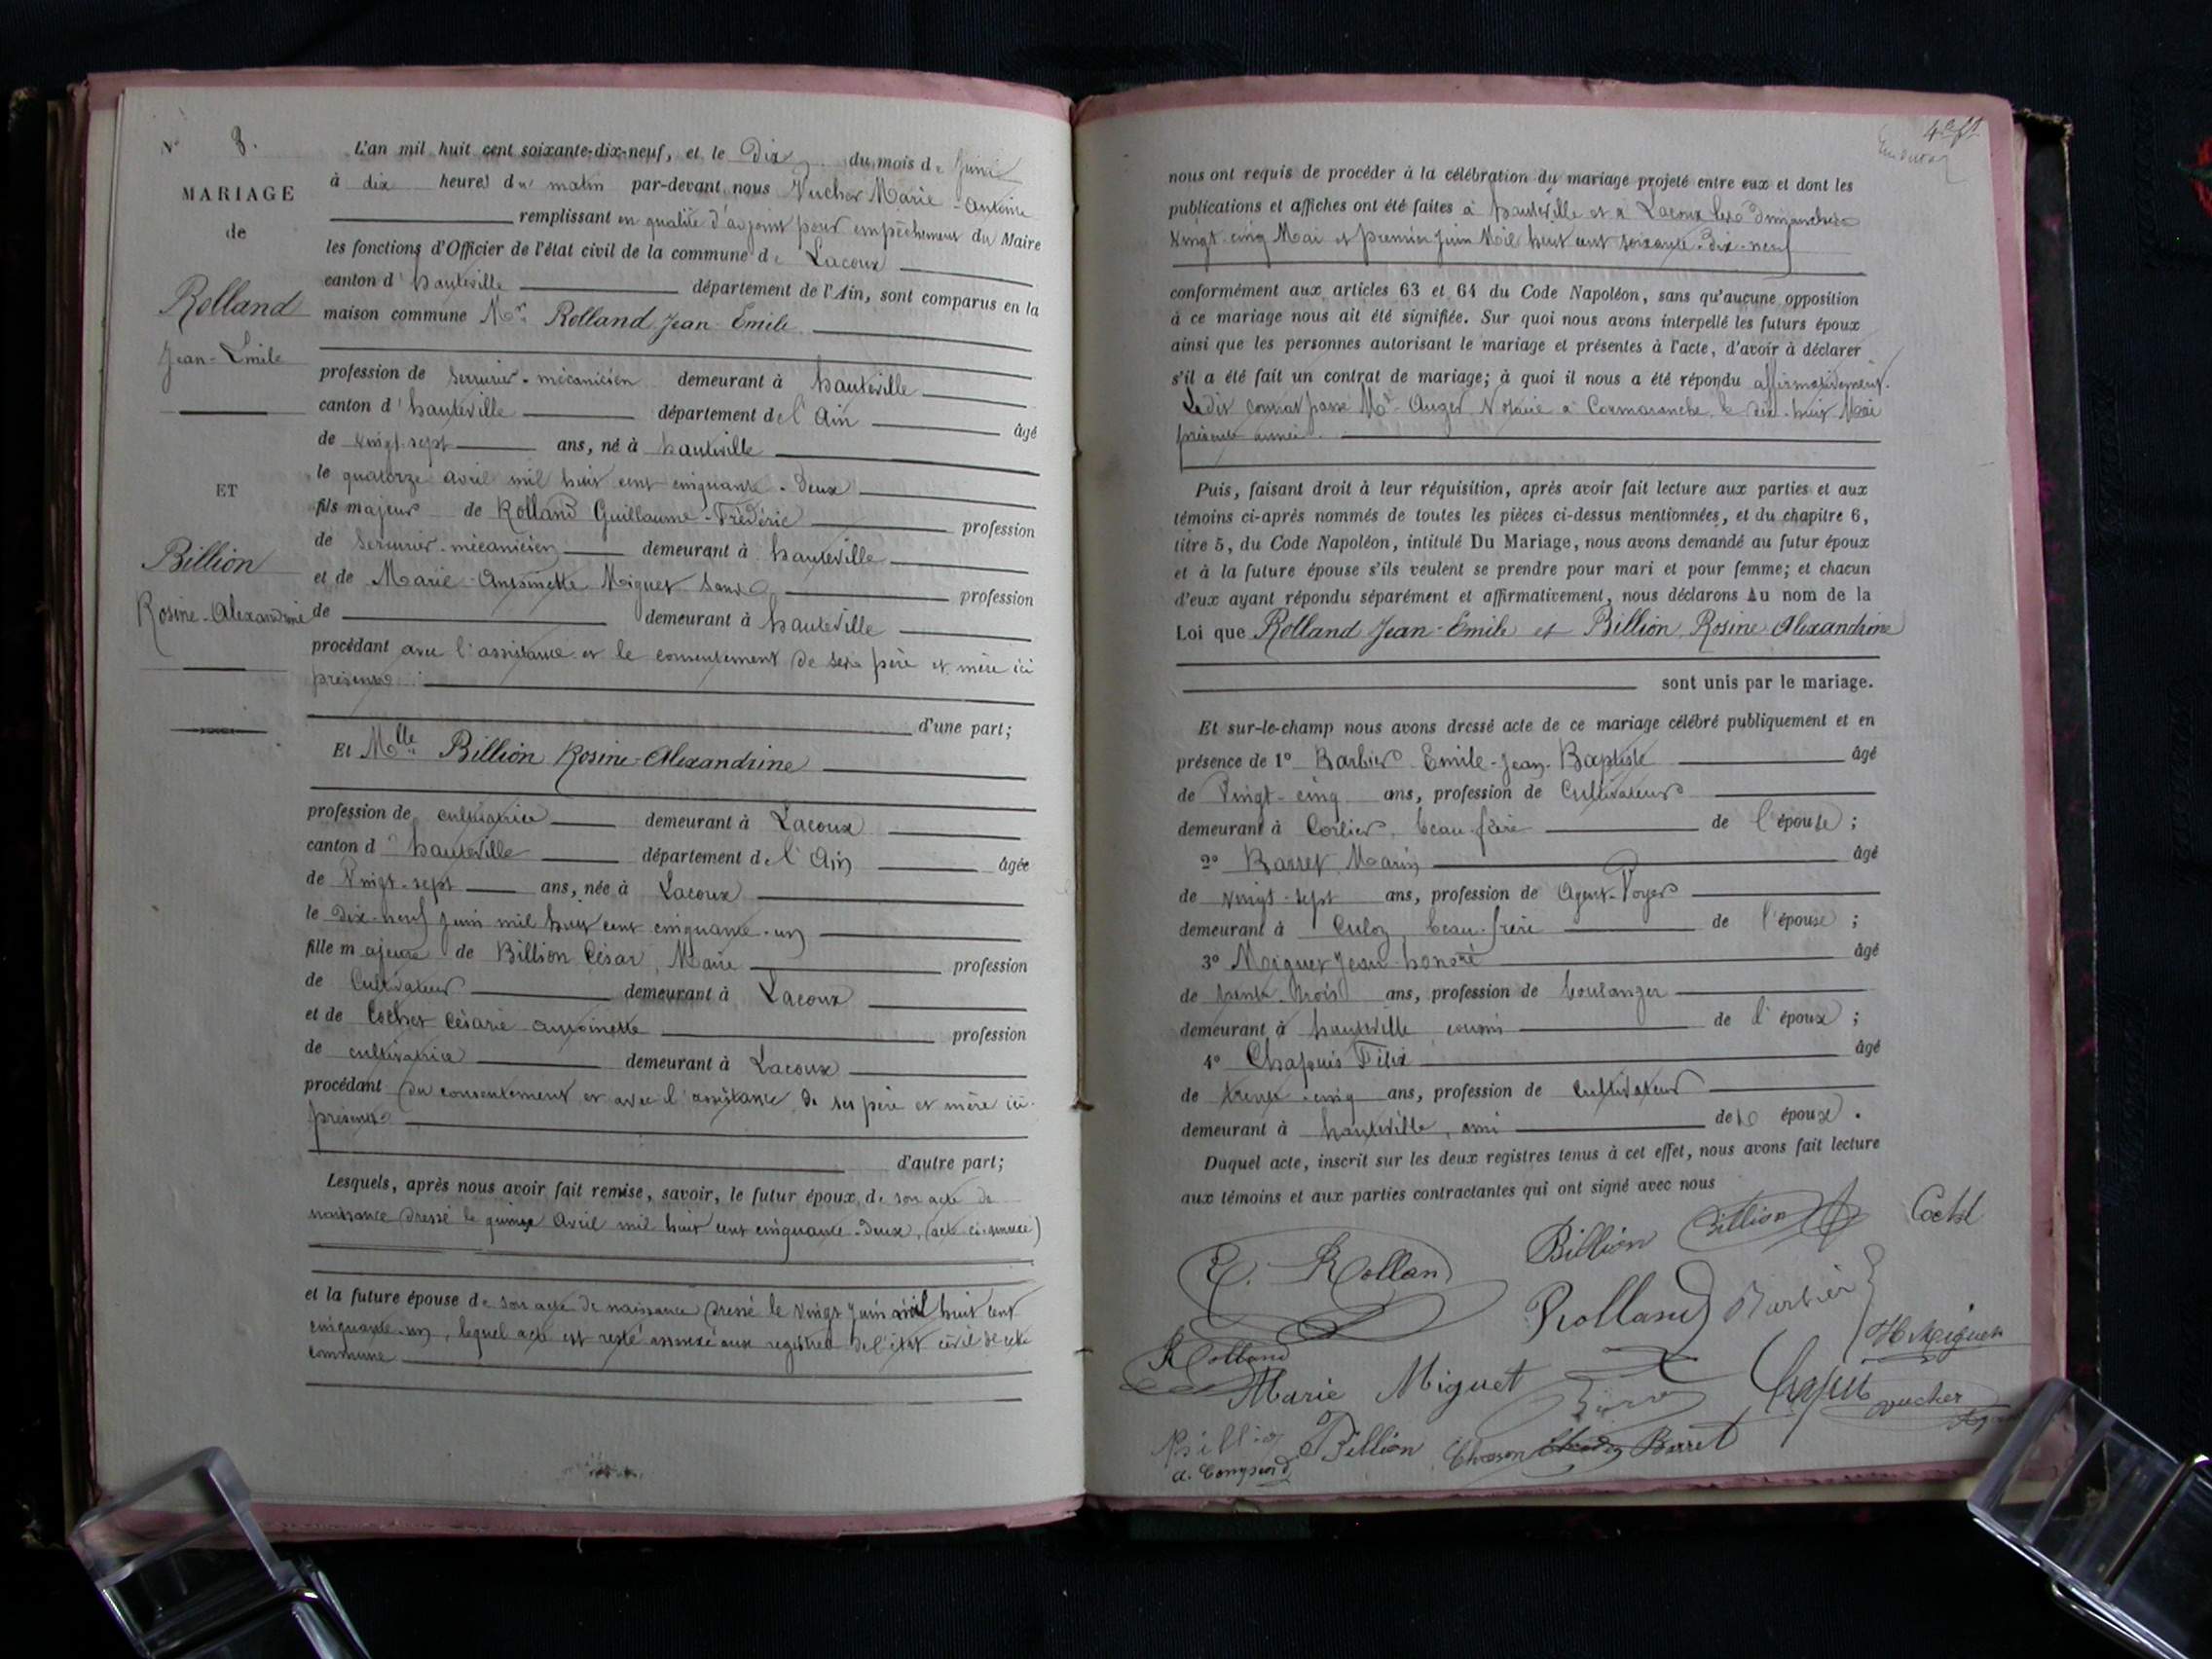 N° 3.
MARIAGE
de
Rolland
Jean-Emile
ET
Billion
Rosine-Alexandrine
L'an mil huit cent soixante-dix-neuf, et le Dix du mois de Juin
à dix heures du matin par-devant nous Vucher Marie-Antoine
remplissant en qualité d'adjoint pour empêchement du Maire
les fonctions d'Officier de l'état civil de la commune de Lacoux
canton d'hauteville département de l'Ain, sont comparus en la
maison commune Mr. Rolland Jean-Emile
profession de serrurier-mécanicien demeurant à hauteville
canton d'hauteville département de l'Ain âgé
de vingt-sept ans, né à hauteville
le quatorze avril mil huit cent cinquante-deux
fils majeur de Rolland Guillaume-Frédéric profession
de serrurier-mécanicien demeurant à hauteville
et de Marie-Antoinette Miguet sans profession
de demeurant à hauteville
procédant avec l'assistance et le consentement de ses père et mère ici
présents
d'une part;
Et Mlle Billion Rosine-Alexandrine
profession de cultivatrice demeurant à Lacoux
canton d'hauteville département de l'Ain âgée
de Vingt-sept ans, née à Lacoux
le dix-neuf juin mil huit cent cinquante-un
fille majeure de Billion César, Maire profession
de Cultivateur demeurant à Lacoux
et de Cochet Césarie antoinette profession
de cultivatrice demeurant à Lacoux
procédant du consentement et avec l'assistance de ses père et mère ici
présents
d'autre part;
Lesquels, après nous avoir fait remise, savoir, le futur époux, de son acte de
naissance dressé le quinze Avril mil huit cent cinquante-deux, (acte ci-annexé)
et la future épouse de son acte de naissance dressé le vingt juin mil huit cent
cinquante-un, lequel acte est resté annexé aux registres de l'état civil de cette
commune
4e ft
nous ont requis de procéder à la célébration du mariage projeté entre eux et dont les
publications et affiches ont été faites à hauteville et à Lacoux les dimanches
vingt-cinq Mai et premier juin Mil huit cent soixante-dix-neuf
conformément aux articles 63 et 64 du Code Napoléon, sans qu'aucune opposition
à ce mariage nous ait été signifiée. Sur quoi nous avons interpellé les futurs époux
ainsi que les personnes autorisant le mariage et présentes à l'acte, d'avoir à déclarer
s'il a été fait un contrat de mariage; à quoi il nous a été répondu affirmativement.
Ledit contrat passé Me Auger Notaire à Cormaranche le dix-huit Mai
présente année.
Puis, faisant droit à leur réquisition, après avoir fait lecture aux parties et aux
témoins ci-après nommés de toutes les pièces ci-dessus mentionnées, et du chapitre 6,
titre 5, du Code Napoléon, intitulé Du Mariage, nous avons demandé au futur époux
et à la future épouse s'ils veulent se prendre pour mari et pour femme; et chacun
d'eux ayant répondu séparément et affirmativement, nous déclarons Au nom de la
Loi que Rolland Jean-Emile et Billion Rosine Alexandrine
sont unis par le mariage.
Et sur-le-champ nous avons dressé acte de ce mariage célébré publiquement et en
présence de 1° Barbier Emile-Jean-Baptiste âgé
de Vingt-cinq ans, profession de Cultivateur
demeurant à Corlier, beau-frère de l'épouse;
2° Barret Marin âgé
de vingt-sept ans, profession de Agent-Voyer
demeurant à Culoz, beau-frère de l'épouse;
3° Miguet Jean-honoré âgé
de trente-trois ans, profession de boulanger
demeurant à hauteville cousin de l'époux;
4° Chapuis Félix âgé
de trente-cinq ans, profession de Cultivateur
demeurant à hauteville, ami de époux.
Duquel acte, inscrit sur les deux registres tenus à cet effet, nous avons fait lecture
aux témoins et aux parties contractantes qui ont signé avec nous
E. Rolland Billion Billion Cochet
Rolland Barbier
Rolland H Miguet
Marie Miguet Chapuis Vucher
Billion Billion Barret